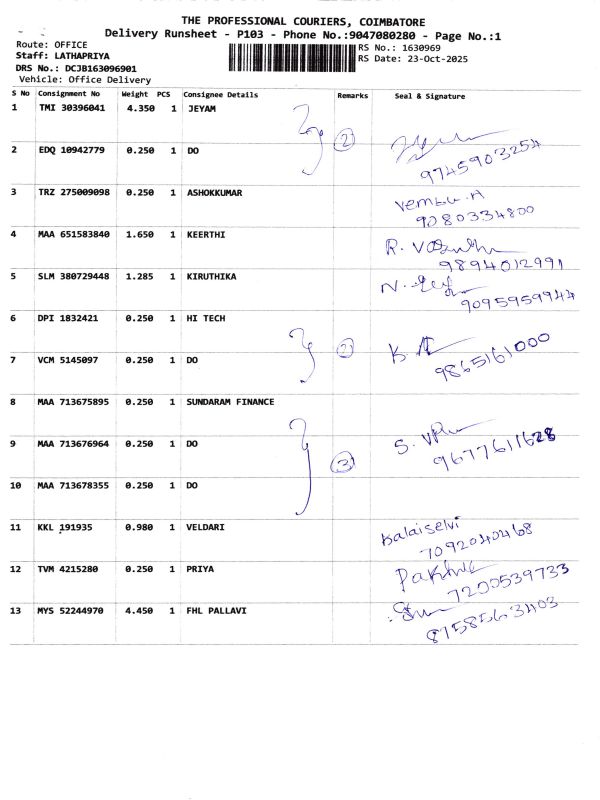 THE PROFESSIONAL COURIERS, COIMBATORE
Delivery Runsheet - P103 - Phone No.:9047080280 - Page No.:1
Route: OFFICE
RS No.: 1630969
Staff: LATHAPRIYA
RS Date: 23-Oct-2025
DRS No.: DCJB163096901
Vehicle: Office Delivery
S No Consignment No Weight PCS Consignee Details Remarks Seal & Signature
1 TMI 30396041 4.350 1 JEYAM
2
2 EDQ 10942779 0.250 1 DO
9745903254
3 TRZ 275009098 0.250 1 ASHOKKUMAR
Vembu.A
9080334800
4 MAA 651583840 1.650 1 KEERTHI
R.
9894012991
5 SLM 380729448 1.285 1 KIRUTHIKA
N.
9095959944
6 DPI 1832421 0.250 1 HI TECH
2
K.
9865161000
7 VCM 5145097 0.250 1 DO
8 MAA 713675895 0.250 1 SUNDARAM FINANCE
9 MAA 713676964 0.250 1 DO
S.
9677611628
3
10 MAA 713678355 0.250 1 DO
11 KKL 191935 0.980 1 VELDARI
Kalaiselvi
7092040468
12 TVM 4215280 0.250 1 PRIYA
7200539733
13 MYS 52244970 4.450 1 FHL PALLAVI
8758563403